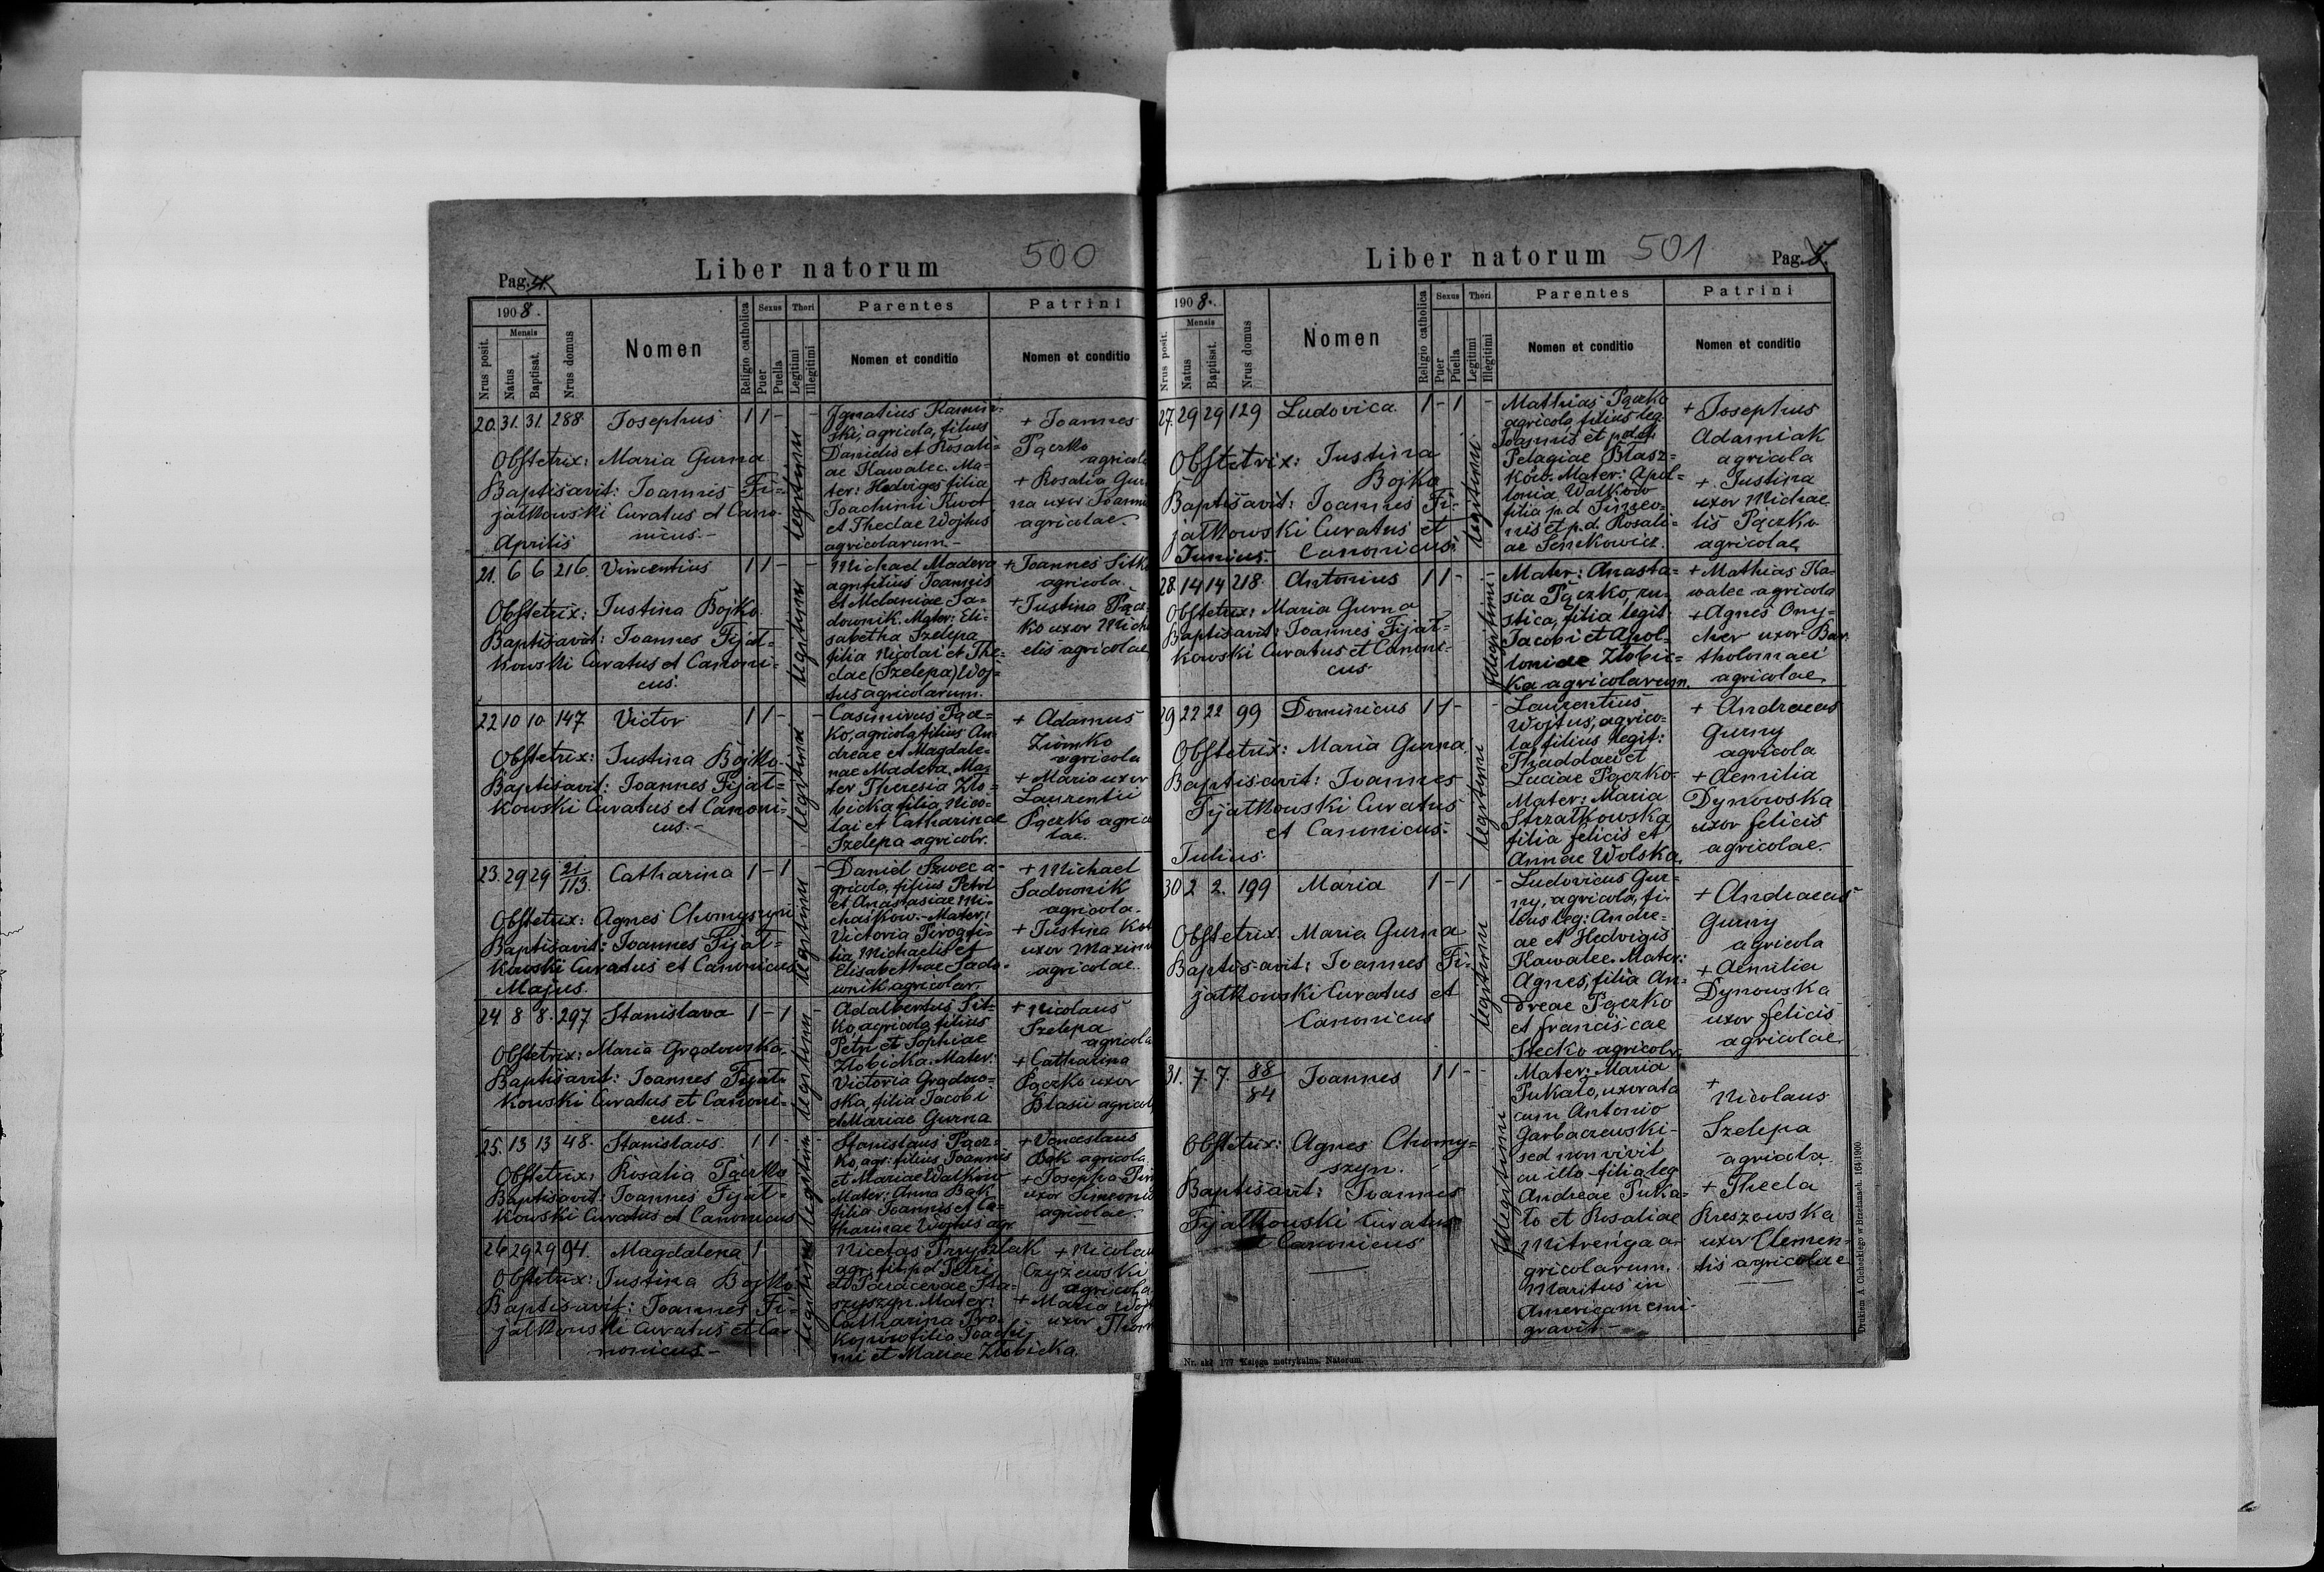 500
Liber natorum
Pag. 4.
1908.
Mensis
Nrus posit.
Natus
Baptisat.
Nrus domus
Nomen
Religio catholica
Sexus
Puer
Puella
Thori
Legitimi
Illegitimi
Parentes
Nomen et conditio
Patrini
Nomen et conditio
20. 31. 31. 288. Josephus 1 1 - -
Obstetrix: Maria Gurna
Baptisavit: Joannes Fi=
jałkowski Curatus et Cano-
nicus.-
legitimi
Ignatius Kamiń-
ski, agricola, filius
Danielis et Rosali-
ae Kawalec. Ma-
ter: Hedviges filia
Joachimi Kwot
et Theclae Wojtus
agricolarum.-
+ Joannes
Pączko
agricola
+ Rosalia Gur
na uxor Joannis
agricolae.
Aprilis
21. 6 6 216. Vincentius 1 1 -
Obstetrix: Justina Bojko.
Baptisavit: Joannes Fijał-
kowski Curatus et Canoni-
cus.
legitimi
Michael Madera
agr. filius Joannis
et Melaniae Sa=
downik. Mater: Eli-
sabetha Szelepa
filia Nicolai et The-
clae (Szelepa) Woj-
tus agricolarum.
+ Joannes Sitko
agricola.
+ Justina Pącz
ko uxor Mich
elis agricolae
22 10 10 147 Victor 1 1 - -
Obstetrix: Justina Bojko.
Baptisavit: Joannes Fijał=
kowski Curatus et Canoni-
cus.-
legitimi
Casimirus Pącz=
ko, agricola filius An
dreae et Magdale-
nae Madera. Ma-
ter Theresia Zło-
bicka filia Nico-
lai et Catharinae
Szelepa agricolr.
+ Adamus
Ziomko
agricola
+ Maria uxor
Laurentii
Pączko agrico
lae.
23. 29 29 21/113. Catharina 1 - 1 -
Obstetrix: Agnes Chomyszyn
Baptisavit: Joannes Fijał=
kowski Curatus et Canonicus
legitimi
Daniel Szwec a-
gricola, filius Petri
et Anastasiae Mi-
chaśkow.- Mater:
Victoria Pirog fi-
lia Michaelis et
Elisabethae Sado-
wnik agricolar.
+ Michael
Sadownik
agricola.
+ Justina Kot
uxor Maximi
agricolae.
Majus.
24. 8 8. 297 Stanislava 1 - 1 -
Obstetrix: Maria Grądowska.
Baptisavit: Joannes Fijał-
kowski Curatus et Canoni-
cus.-
legitimi
Adalbertus Sit-
ko, agricola filius
Petri et Sophiae
Złobicka. Mater:
Victoria Grądow=
ska, filia Jacobi
et Mariae Gurna
+ Nicolaus
Szelepa
agricola
+ Catharina
Pączko uxor
Blasii agricol
25. 13 13 48. Stanislaus 1 1 - -
Obstetrix: Rosalia Pączko
Baptisavit: Joannes Fijał=
kowski Curatus et Canonicus
legitimi
Stanislaus Pącz=
ko, agr: filius Joannis
et Mariae Walkow
Mater: Anna Bąk
filia Joannis et Ca-
tharinae Wojtus agr
+ Venceslaus
Bąk agricola
+ Josepha
uxor Simeonis
agricolae.
26 29 29 94. Magdalena 1
Obstetrix: Justina Bojko
Baptisavit: Joannes Fi=
jałkowski Curatus et Ca-
nonicus.-
legitimi
Nicetas Przyszlak
agr. fil. p.d. Petri
et Paraccevae Sta-
szyszyn. Mater:
Catharina Pro-
kopiw filia Joachi
mi et Mariae Złobicka.
+ Nicolau
Czyżewski
agricola
+ Maria Wojt
uxor Thom
Liber natorum
501
Pag.
1908.
Mensis
Nrus posit.
Natus
Baptisat.
Nrus domus
Nomen
Religio catholica
Sexus
Puer
Puella
Thori
Legitimi
Illegitimi
Parentes
Nomen et conditio
Patrini
Nomen et conditio
27. 29 29 129 Ludovica. 1 - 1 -
Obstetrix: Justina
Bojko
Baptisavit: Joannes Fi=
jałkowski Curatus et
Canonicus.
legitimi
Mathias Pączko
agricola, filius leg.
Joannis et p.def.
Pelagiae Błasz-
ków. Mater: Apol=
lonia Walków
filia p.d Simeo-
nis et p.d. Rosali-
ae Senkowicz.
+ Josephus
Adamiak
agricola
+ Justina
uxor Michae
lis Pączko
agricolae
Junius.
28. 14 14 218. Antonius 1 1 - -
Obstetrix: Maria Gurna
Baptisavit: Joannes Fijał-
kowski Curatus et Canoni-
cus
illegitimi
Mater: Anasta=
sia Pączko, ru-
stica, filia legit.
Jacobi et Apol-
loniae Złobic=
ka agricolarum.
+ Mathias Ka-
walec agricola
+ Agnes Ony=
cher uxor Bar.
tholomaei
agricolae
29 22 22 99 Dominicus 1 1 - -
Obstetrix: Maria Gurna.
Baptisavit: Joannes
Fijałkowski Curatus
et Canonicus.
legitimi
Laurentius
Wojtus, agrico-
la, filius legit:
Thaddaei et
Luciae Pączko.
Mater: Maria
Strzałkowska,
filia felicis et
Annae Wolska.
+ Andraeas
Gurny
agricola
+ Aemilia
Dynowska
uxor felicis
agricolae.
Julius.
30 2 2. 199 Maria 1 - 1 -
Obstetrix Maria Gurna
Baptis-avit: Joannes Fi-
jałkowski Curatus et
Canonicus
legitimi
Ludovicus Gur-
ny, agricola, fi-
lius leg: Andre=
ae et Hedvigis
Kawalec. Mater:
Agnes, filia An-
dreae Pączko
et franciscae
Stecko agricolr.
+ Andraeas
Gurny
agricola
+ Aemilia
Dynowska
uxor felicis
agricolae.
31. 7. 7. 88/84 Joannes 1 1 - -
Obstetrix: Agnes Chomy=
szyn.
Baptisavit: Joannes
Fijałkowski Curatus
et Canonicus
illegitimi
Mater: Maria
Pukało, uxorata
cum Antonio
Garbaczewski-
sed non vivit
cu illo - filia leg
Andreae Puka=
ło et Rosaliae
Mitrenga a-
gricolarum.
Maritus in
Americam emi-
gravit.-
+
Nicolaus
Szelepa
agricola.
+ Thecla
Kreszowska
uxor Clemen-
tis agricolae
Nr. skł. 177 Księga metrykalna. Natorum.
Drukiem A. Cichockiego w Brzeżanach. 164|1900.